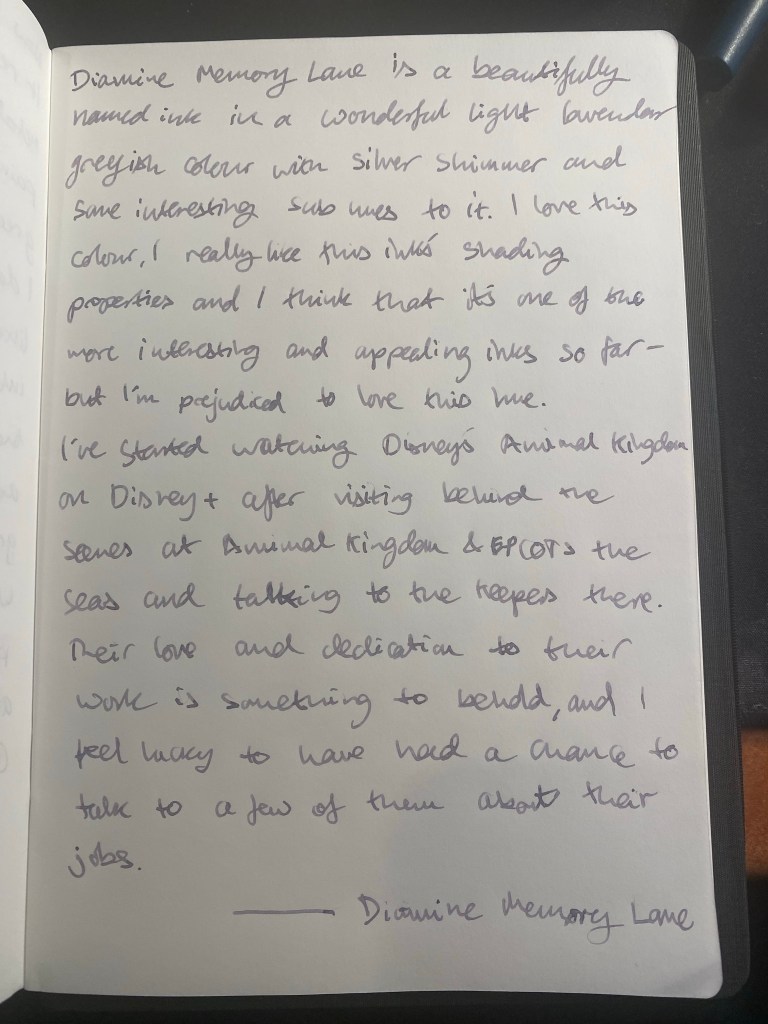 Diamine Memory Lane is a beautifully
named ink in a wonderful light lavender
greyish colour with silver shimmer and
some interesting sub hues to it. I love this
colour, I really like this ink's shading
properties and I think that it's one of the
more interesting and appealing inks so far –
but I'm prejudiced to love this hue.
I've started watching Disney's Animal Kingdom
on Disney+ after visiting behind the
scenes at Animal Kingdom & EPCOTs the
seas and talking to the keepers there.
Their love and dedication to their
work is something to behold, and I
feel lucky to have had a chance to
talk to a few of them about their
jobs.
—— Diamine Memory Lane